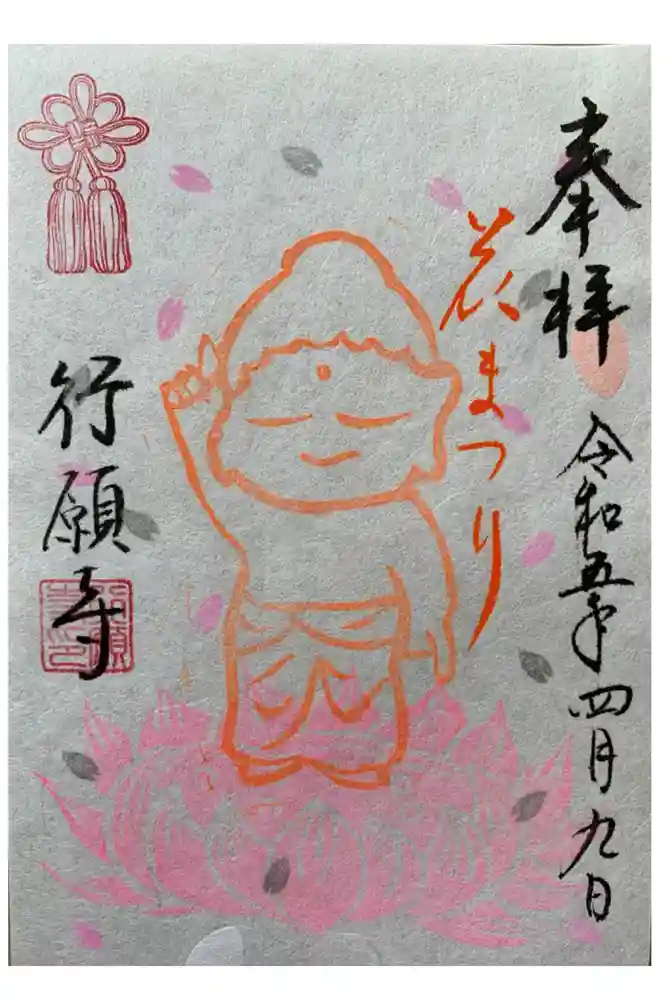 奉拝
令和五年四月九日
花まつり
行願寺